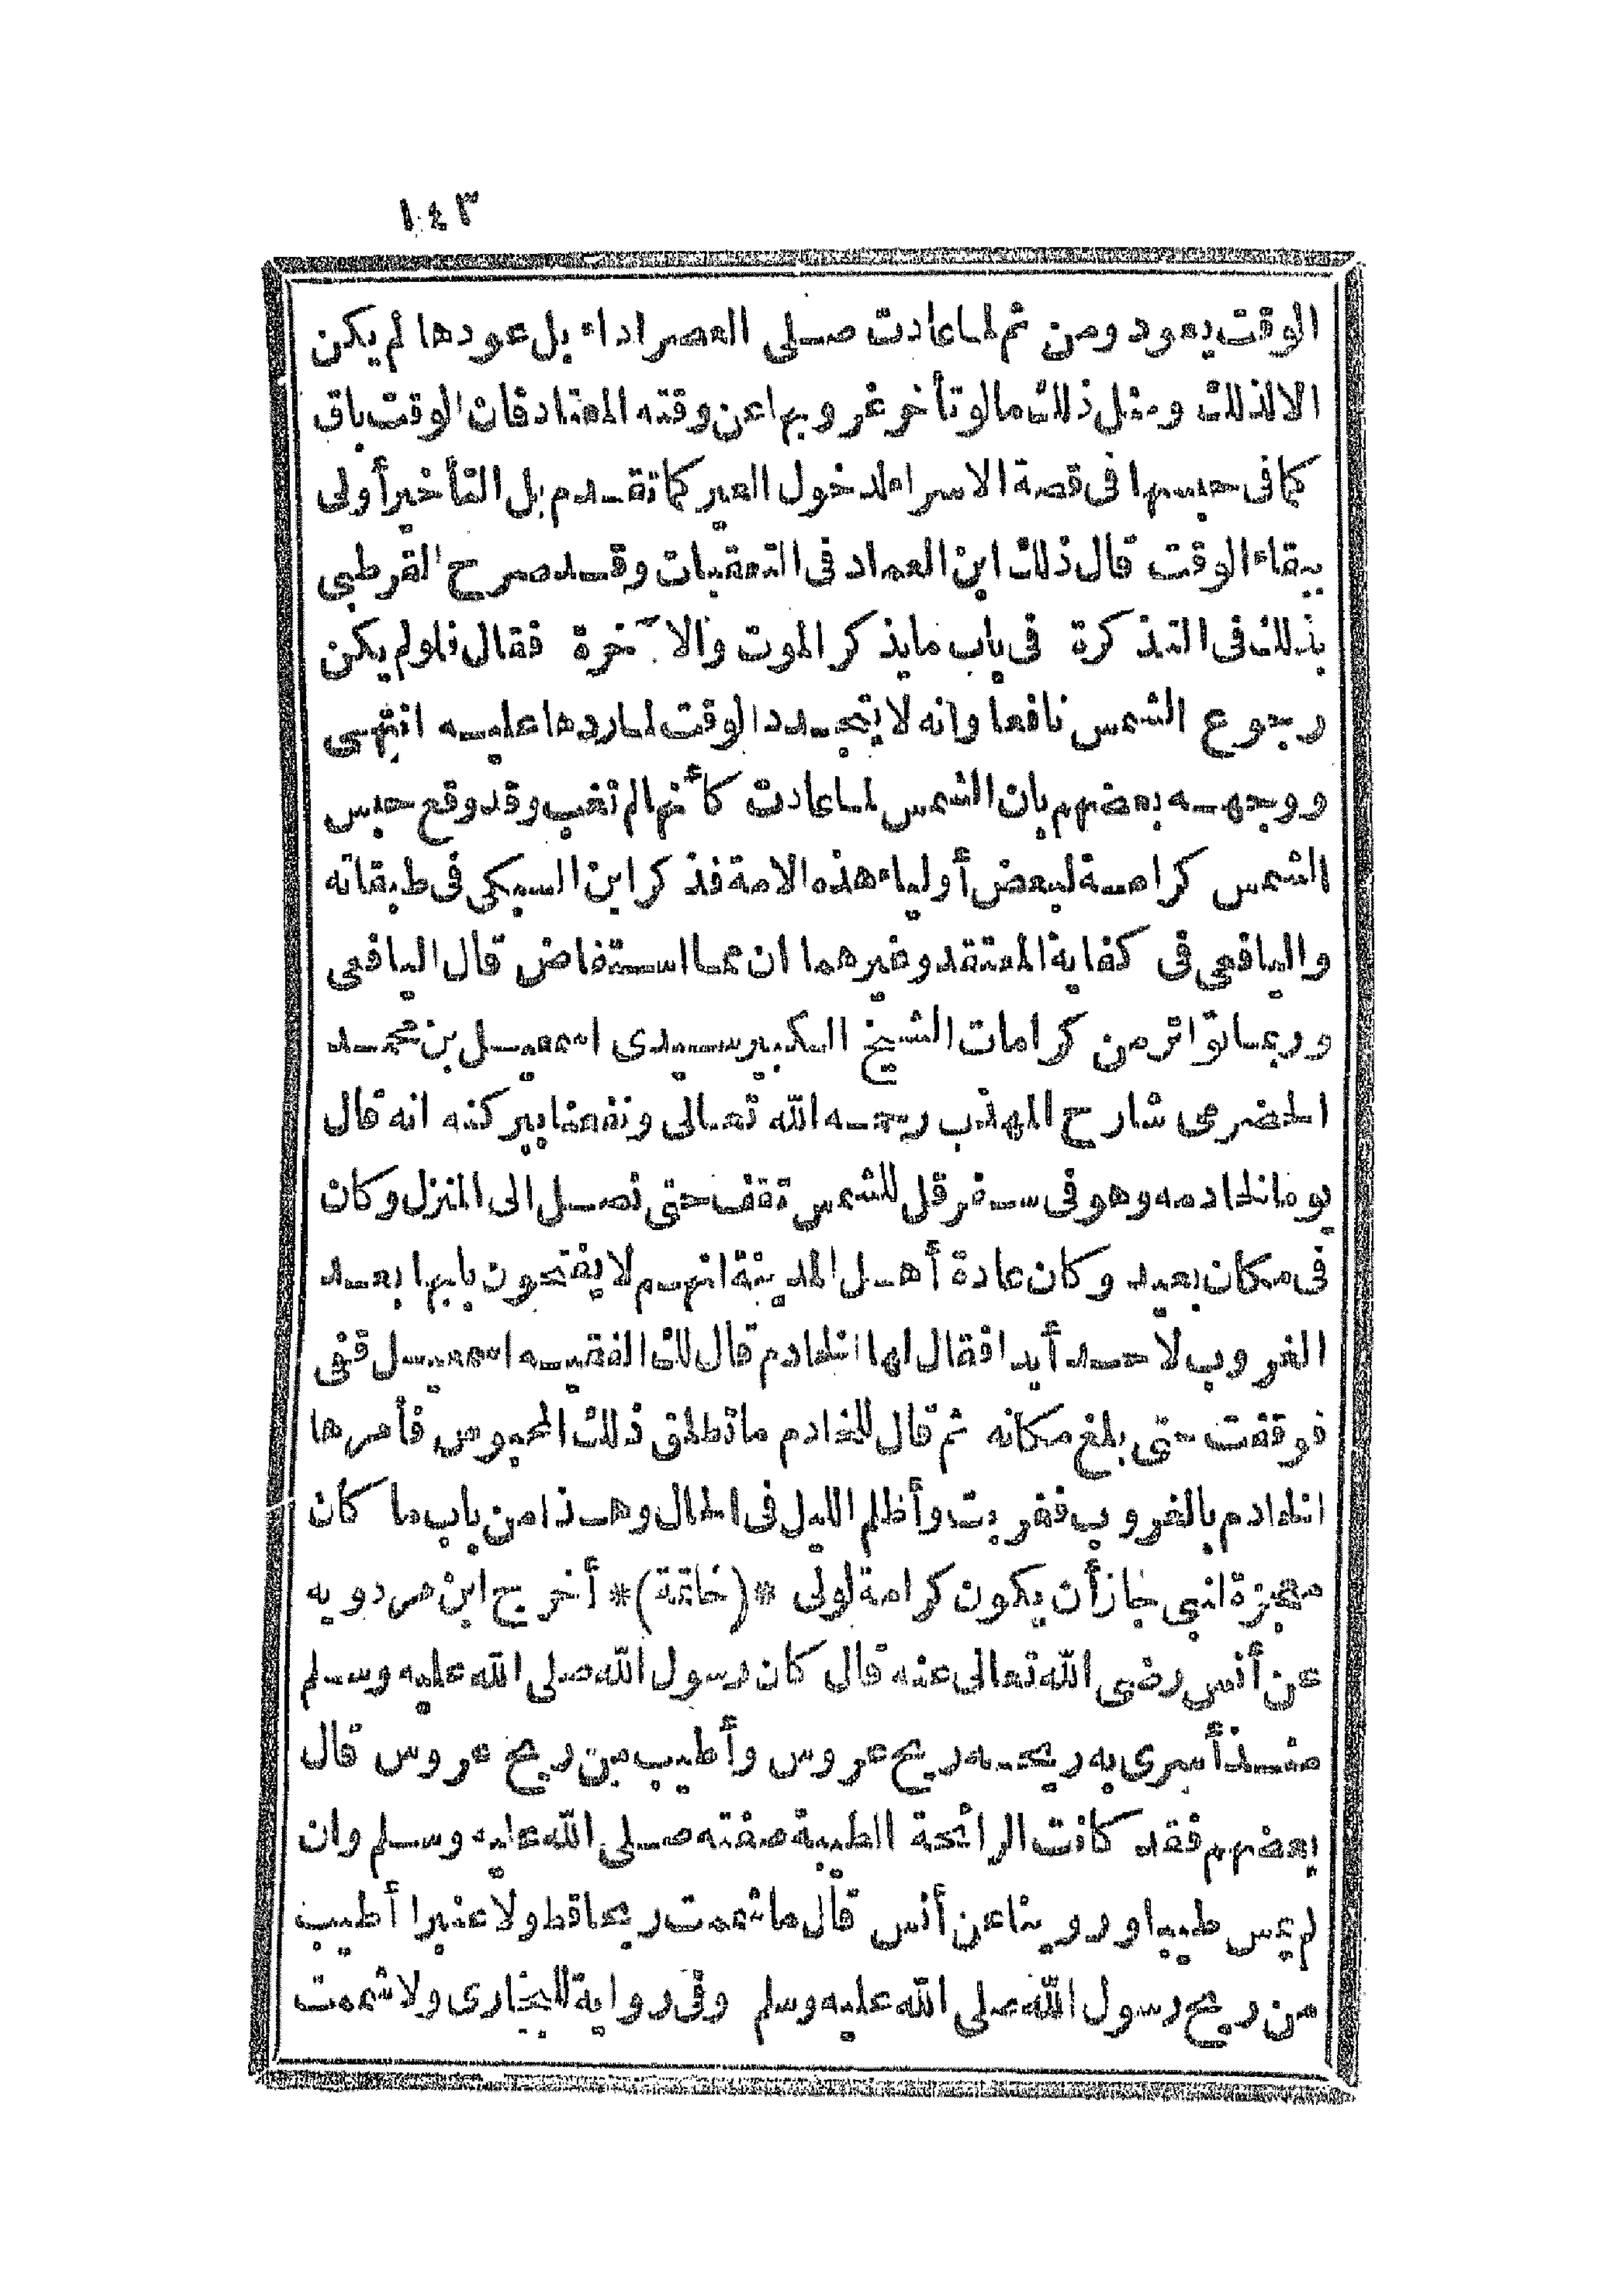 ١٤٣
الوقت يعود ومن ثم لما عادت صلى العصر اداء بل عودها لم يكن
الا لذلك ومثل ذلك ما لو تأخر غروبها عن وقته المعتاد فان الوقت باق
كما فى حبسها فى قصة الاسراء لدخول العير كما تقدم بل التأخير أولى
ببقاء الوقت قال ذلك ابن العماد فى التعقبات وقد صرح القرطبى
بذلك فى التذكرة فى باب ما يذكر الموت والآخرة فقال فلو لم يكن
رجوع الشمس نافعا وانه لا يتجدد الوقت لما ردها عليه انتهى
ووجهه بعضهم بان الشمس لما عادت كأنها لم تغب وقد وقع حبس
الشمس كرامة لبعض أولياء هذه الامة فذكر ابن السبكى فى طبقاته
واليافعى فى كفاية المعتقد وغيرهما ان مما استفاض قال اليافعى
وربما تواتر من كرامات الشيخ الكبير سيدى اسمعيل بن محمد
الحضرمى شارح المهذب رحمه الله تعالى ونفعنا ببركته انه قال
يوما لخادمه وهو فى سفر قل للشمس تقف حتى نصل الى المنزل وكان
فى مكان بعيد وكان عادة أهل المدينة انهم لا يفتحون بابها بعد
الغروب لاحد أبدا فقال لها الخادم قال لك الفقيه اسمعيل قفى
فوقفت حتى بلغ مكانه ثم قال للخادم ما تطلق ذلك المحبوس فأمرها
الخادم بالغروب فغربت وأظلم الليل فى الحال وهذا من باب ما كان
معجزة لنبى جاز أن يكون كرامة لولى *(خاتمة)* أخرج ابن مردويه
عن أنس رضى الله تعالى عنه قال كان رسول الله صلى الله عليه وسلم
منذ أسرى به ريحه ريح عروس وأطيب من ريح عروس قال
بعضهم فقد كانت الرائحة الطيبة صفته صلى الله عليه وسلم وان
لم يمس طيبا وروينا عن أنس قال ما شممت ريحا قط ولا عنبرا أطيب
من ريح رسول الله صلى الله عليه وسلم وفى رواية للبخارى ولا شممت